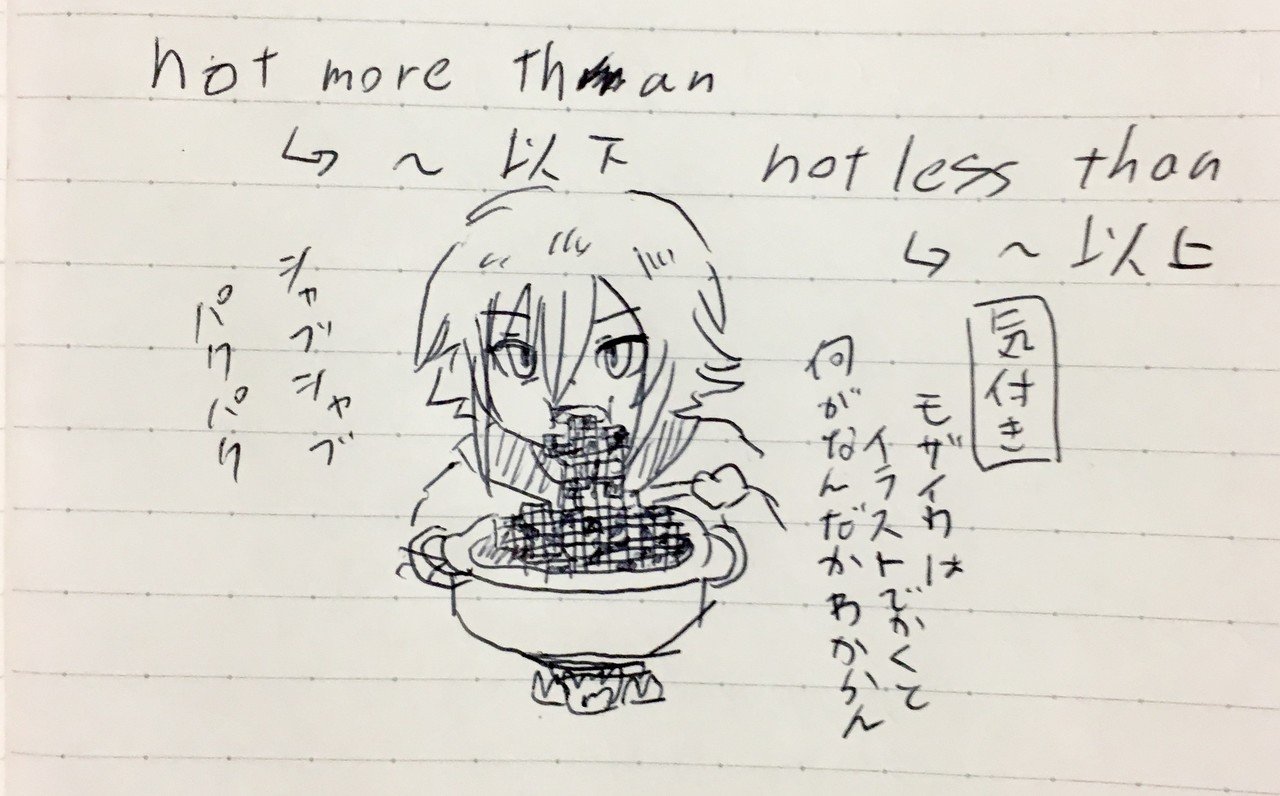 not more than
↳ ~ 以下
not less than
↳ ~ 以上
気付き
モザイクは
イラストでかくて
何がなんだかわからん
シャブシャブ
パクパク